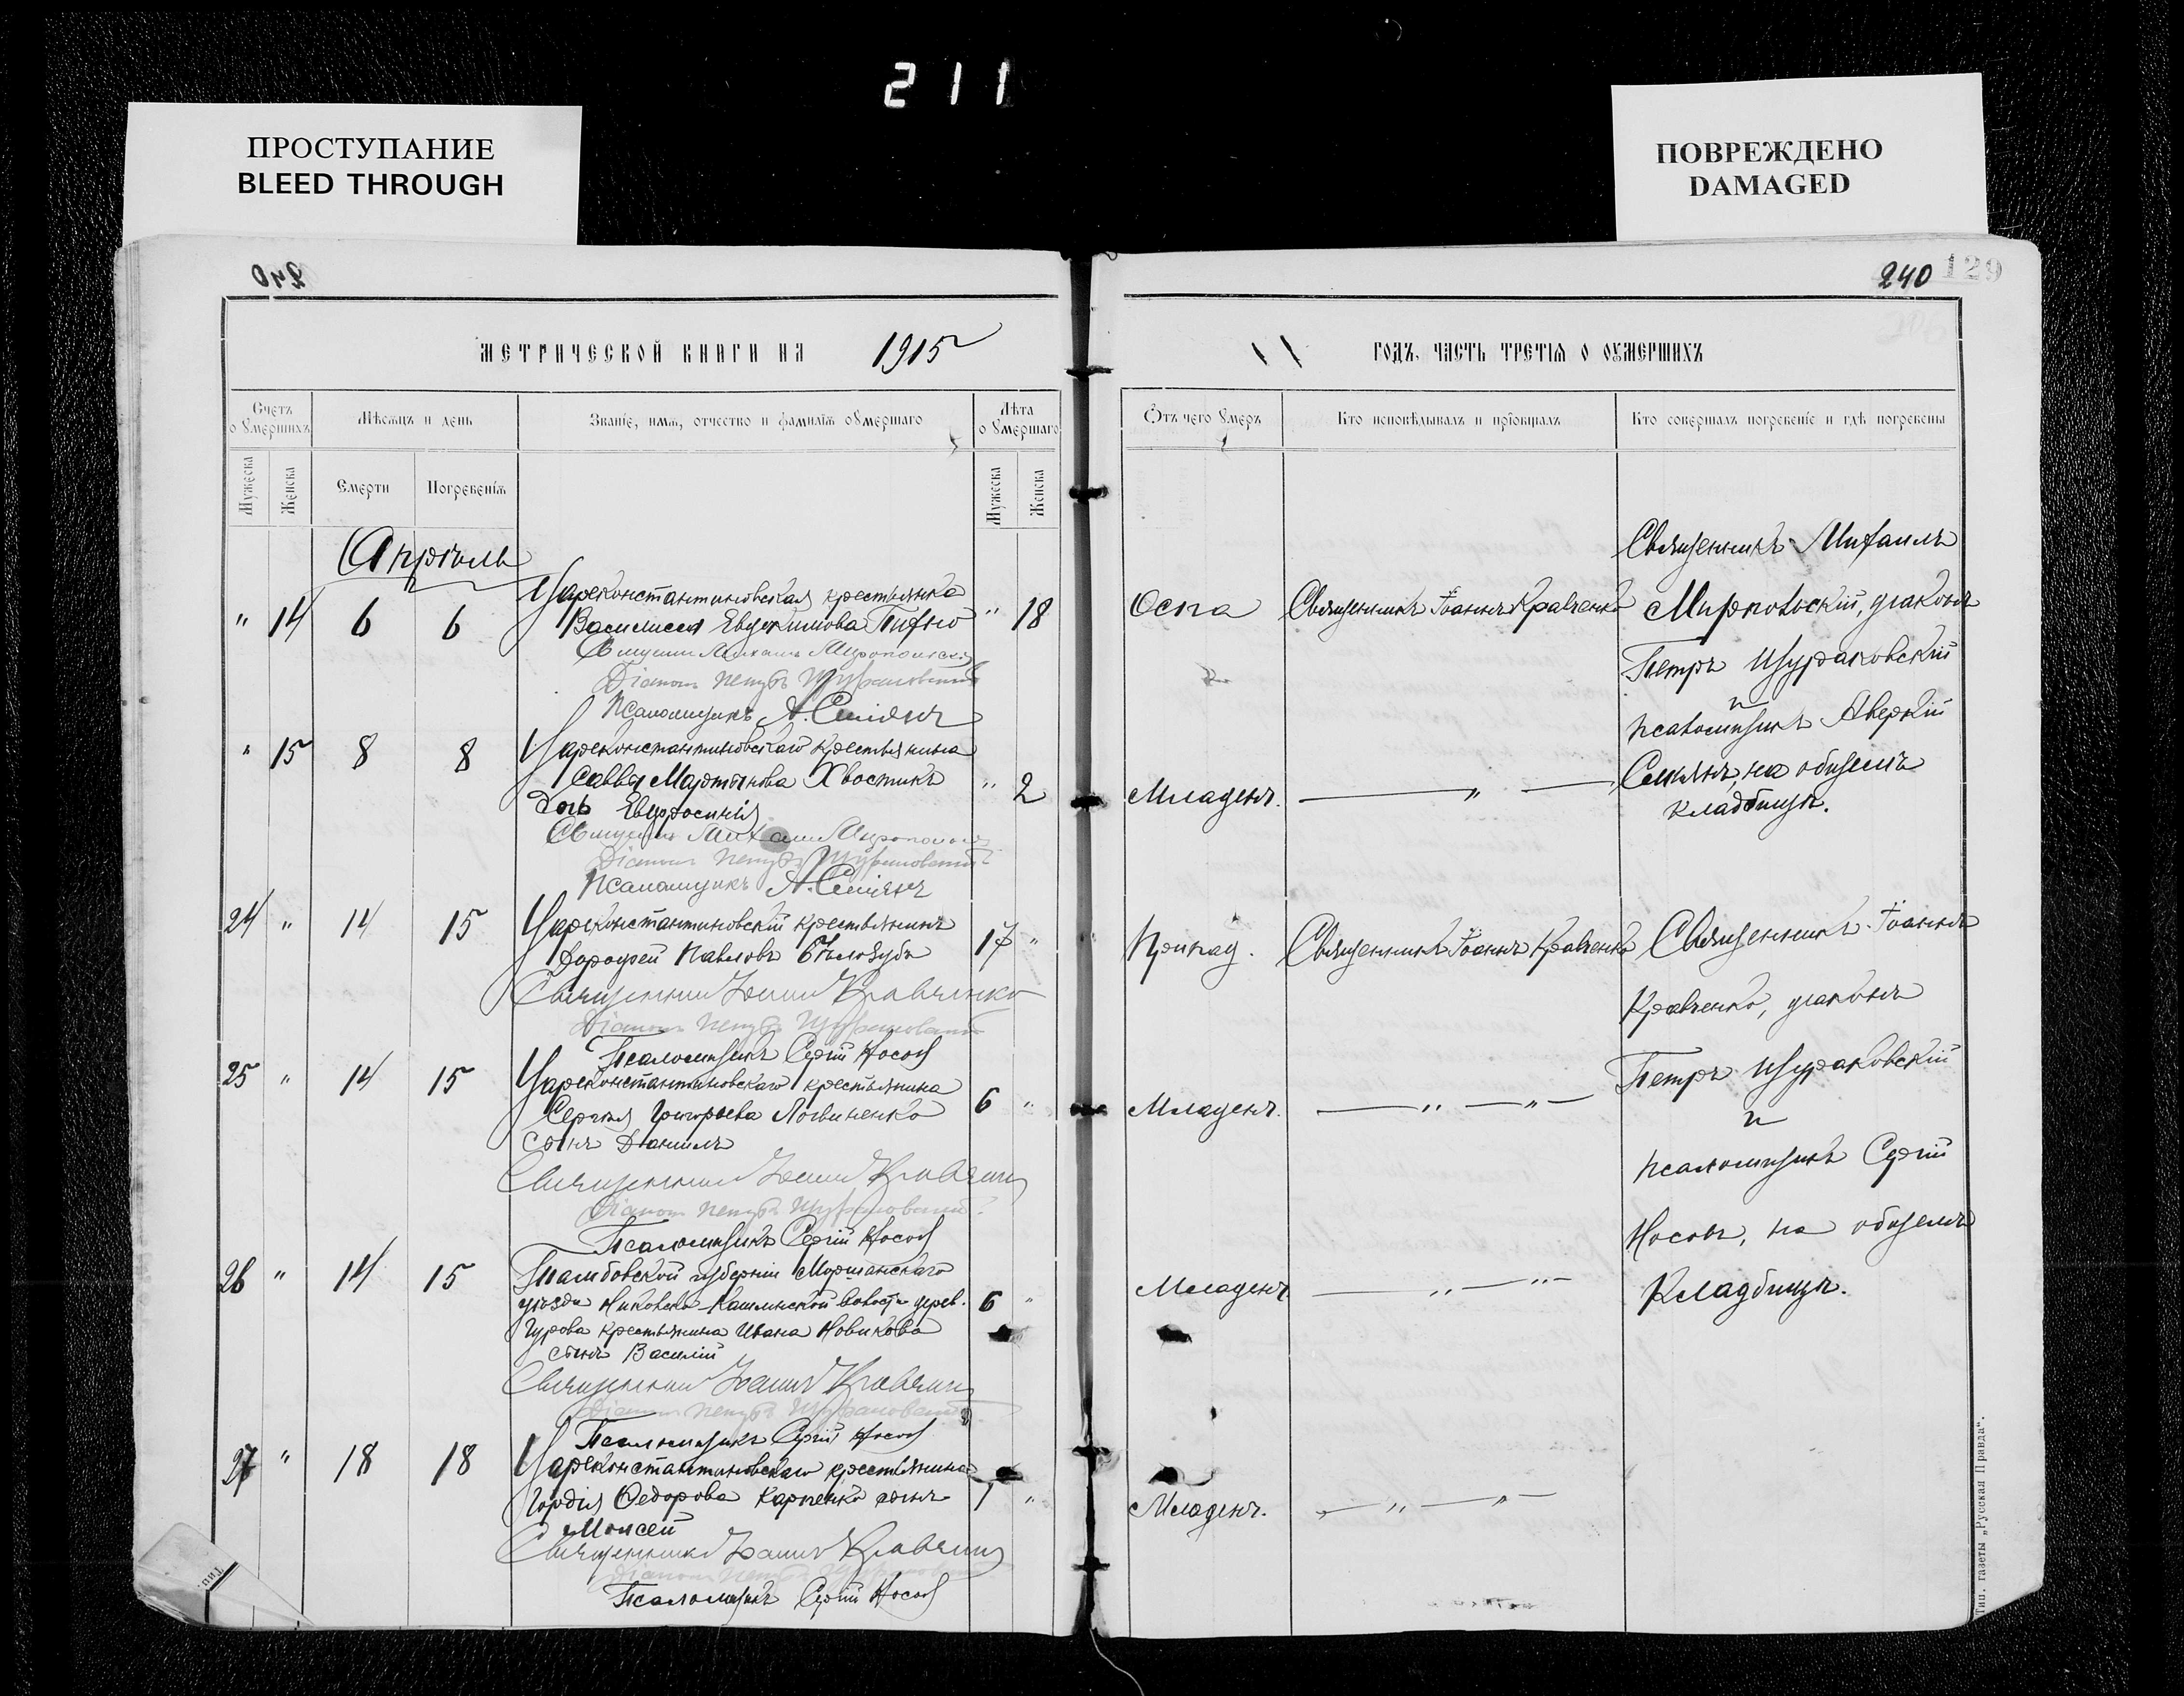 211
ПРОСТУПАНИЕ
BLEED THROUGH
ПОВРЕЖДЕНО
DAMAGED
240
240 129
МЕТРИЧЕСКОЙ КНИГИ НА 1915
ГОДЪ, ЧАСТЬ ТРЕТІЯ О ОУМЕРШИХЪ
Счетъ о умершихъ
Мѣсяцъ и день
Званіе, имя, отчество и фамилія оумершаго
Лѣта о умершаго
Отъ чего умеръ
Кто исповѣдывалъ и пріобщалъ
Кто совершалъ погребеніе и гдѣ погребены
Мужеска
Женска
Смерти
Погребенія
Мужеска
Женска
Апрѣль
" 14 6 6
Цареконстантиновская крестьянка
Василисса Евдокимова
" 18
Оспа
Священникъ Іоаннъ Кравченко
Священникъ Михаилъ
діаконъ
Петръ
и
псаломщикъ Аверкій
на общемъ
кладбищѣ.
Діаконъ Петръ
Псаломщикъ А.
" 15 8 8
Цареконстантиновскаго крестьянина
Саввы Мартынова Хвостикъ
дочь Евфросинія
" 2
Младенч. — " —
Діаконъ Петръ
Псаломщикъ А.
24 " 14 15
Цареконстантиновскій крестьянинъ
Дорофей Павловъ Бѣлозубъ
17 "
Припад.
Священникъ Іоаннъ Кравченко
Священникъ Іоаннъ
Кравченко, діаконъ
Петръ
и
псаломщикъ Сергій
Носовъ, на общемъ
кладбищѣ.
Священникъ Іоаннъ Кравченко
Діаконъ Петръ
Псаломщикъ Сергій Носовъ
25 " 14 15
Цареконстантиновскаго крестьянина
Сергѣя Григорьева Логвиненко
сынъ Даніилъ
6 "
Младенч. — " — " —
Священникъ Іоаннъ Кравченко
Діаконъ Петръ
Псаломщикъ Сергій Носовъ
26 " 14 15
Тамбовской губерніи Моршанскаго
уѣзда волости дерев.
Гурова крестьянина Ивана Новикова
сынъ Василій
6 "
Младенч. — " — " —
Священникъ Іоаннъ Кравченко
Діаконъ Петръ
Псаломщикъ Сергій Носовъ
27 " 18 18
Цареконстантиновскаго крестьянина
Гордія Ѳедорова Карпенко сынъ
Моисей
1 "
Младенч. — " — " —
Священникъ Іоаннъ Кравченко
Діаконъ Петръ
Псаломщикъ Сергій Носовъ
Тип.
Тип. газеты „Русская Правда“.